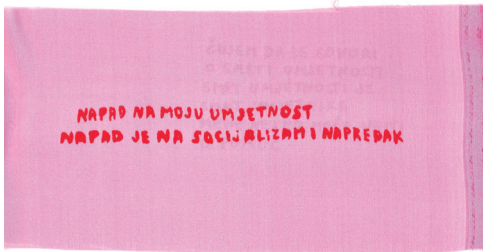 NAPAD NA MOJU UMJETNOST
NAPAD JE NA SOCIJALIZAM I NAPREDAK